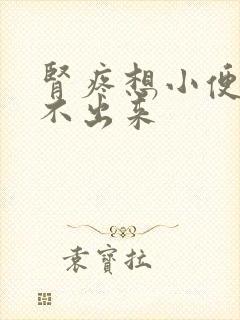 腎疼想小便
不出来
袁寶拉